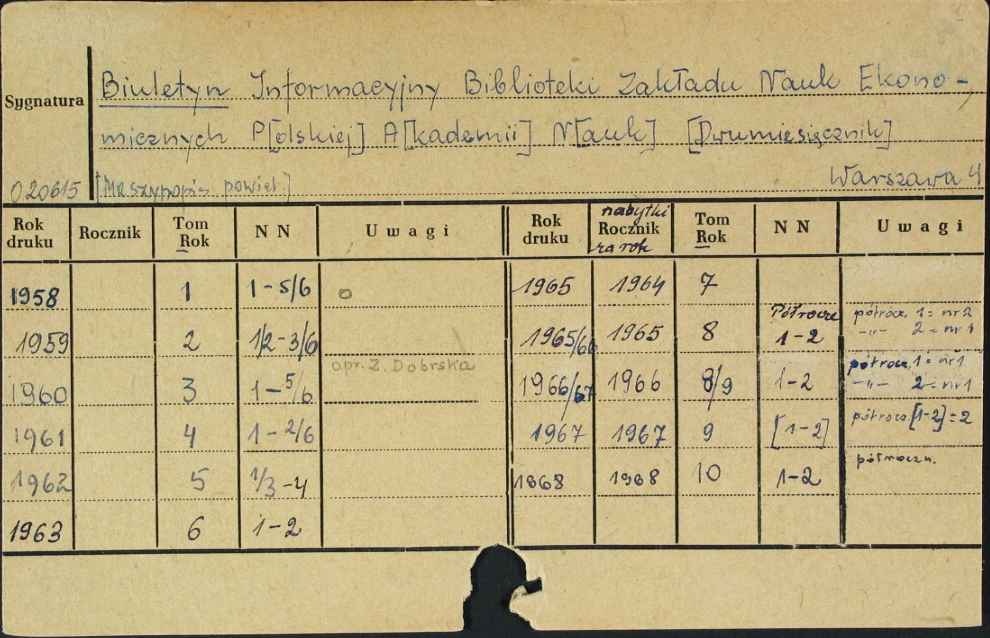 Sygnatura
Biuletyn Informacyjny Biblioteki Zakładu Nauk Ekono-
micznych P[olskiej] A[kademii] N[auk] [Dwumiesięcznik]
020615 [Maszynopis powiel.] Warszawa 4
Rok druku Rocznik Tom Rok NN Uwagi Rok druku nabytki Rocznik za rok Tom Rok NN Uwagi
1958 1 1-5/6 o 1965 1964 7
1959 2 1/2-3/6 1965/66 1965 8 Półrocze 1-2 półrocze 1 = nr 2 -"- 2 = nr 1
opr. Z. Dobrska
1960 3 1-5/6 1966/67 1966 8/9 1-2 półrocz. 1 = nr 1 -"- 2 = nr 1
1961 4 1-2/6 1967 1967 9 [1-2] półrocze [1-2] = 2
1962 5 1/3-4 1868 1968 10 1-2 półroczn.
1963 6 1-2